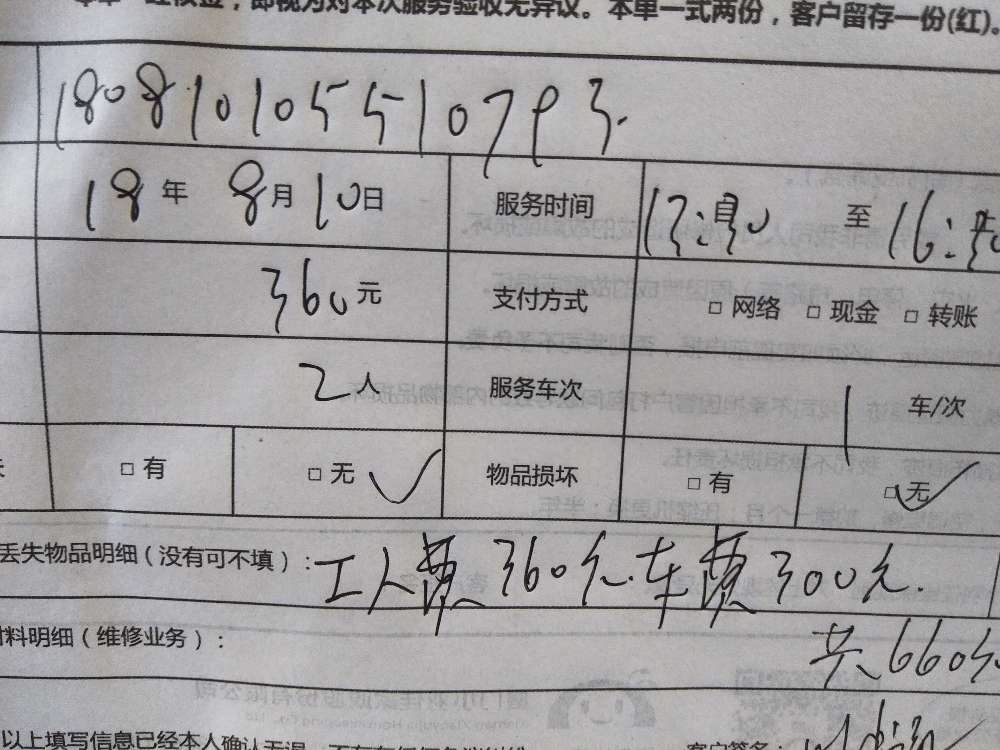 经核金，即视为对本次服务验收无异议。本单一式两份，客户留存一份(红)。
180810105510793
18年 8月10日 服务时间 至 16:
360元 支付方式 □ 网络 □ 现金 □ 转账
2人 服务车次 1 车/次
□ 有 □ 无 ✓ 物品损坏 □ 有 □ 无 ✓
丢失物品明细（没有可不填）：工人费360元.车费300元.
材料明细（维修业务）：
共660元
以上填写信息已经本人确认无误
客户签名：